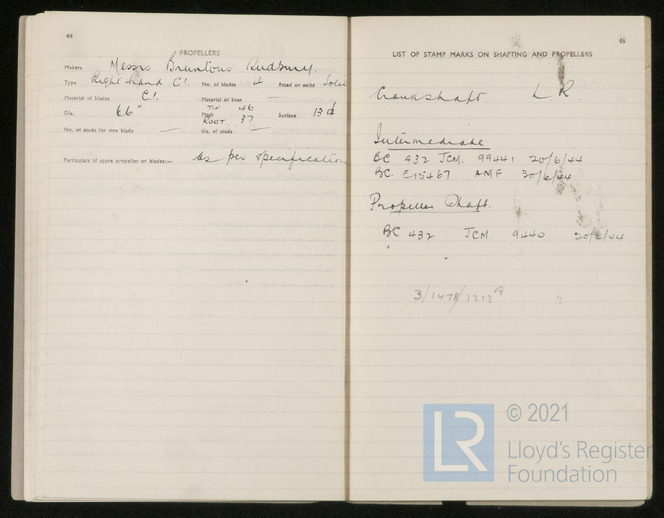 44
PROPELLERS
Makers Messrs Bruntons Sudbury.
Type Right hand C.I. No. of blades 4 fitted or solid Solid
Material of blades C.I. Material of boss —
Dia. 66" Pitch TIP 46 ROOT 37 Surface 13
No. of studs for one blade — dia. of studs —
Particulars of spare propeller or blades:— As per specification
45
LIST OF STAMP MARKS ON SHAFTING AND PROPELLERS
Crankshaft L.R.
Intermediate
BC 432 JCM. 99441 20/6/44
BC. E15467 AMF 30/6/44
Propeller Shaft.
BC 432 JCM. 9440 20/6/44
3/1478/1212A
LR
© 2021
Lloyd's Register
Foundation